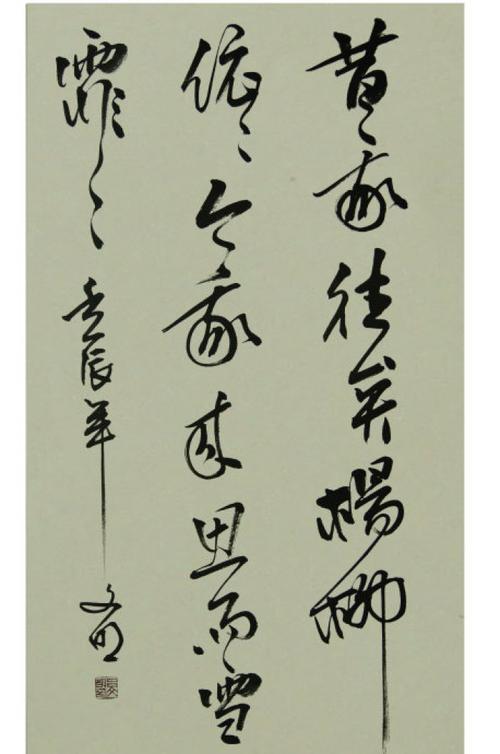 昔我往矣楊柳
依々今我來思雨雪
霏々壬辰年文明